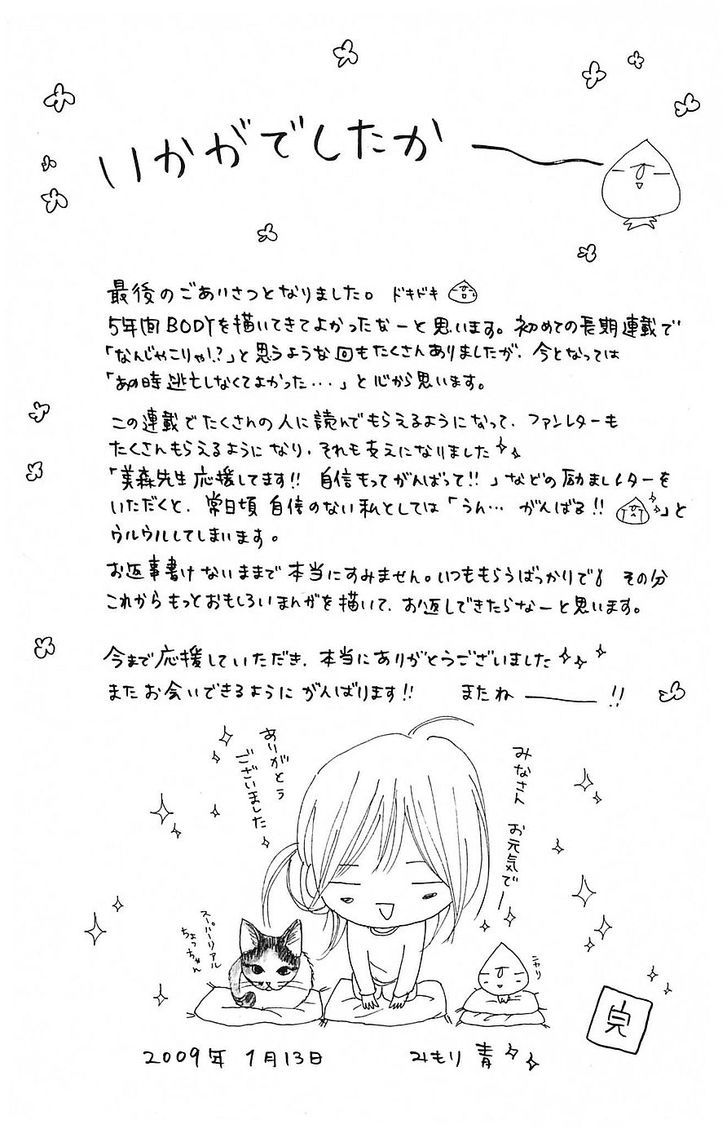 いかがでしたか
最後のごあいさつとなりました。 ドキドキ
5年間BODYを描いてきてよかったなーと思います。初めての長期連載で
「なんじゃこりゃ!?」と思うような回もたくさんありましたが、今となっては
「あの時逃亡しなくてよかった・・・」と心から思います。
この連載でたくさんの人に読んでもらえるようになって、ファンレターも
たくさんもらえるようになり、それも支えになりました
「美森先生応援してます!! 自信もってがんばって!!」などの励ましレターを
いただくと、常日頃自信のない私としては「うん… がんばる!! 」と
ウルウルしてしまいます。
お返事書けないままで本当にすみません。いつももらうばっかりで その分
これからもっとおもしろいまんがを描いて、お返しできたらなーと思います。
今まで応援していただき、本当にありがとうございました
またお会いできるようにがんばります!! またね――!!
みなさん お元気でー
ありがとう
ございました
スーパーリアル
ちょっちゃん
ニヤリ
2009年 1月13日 みもり青